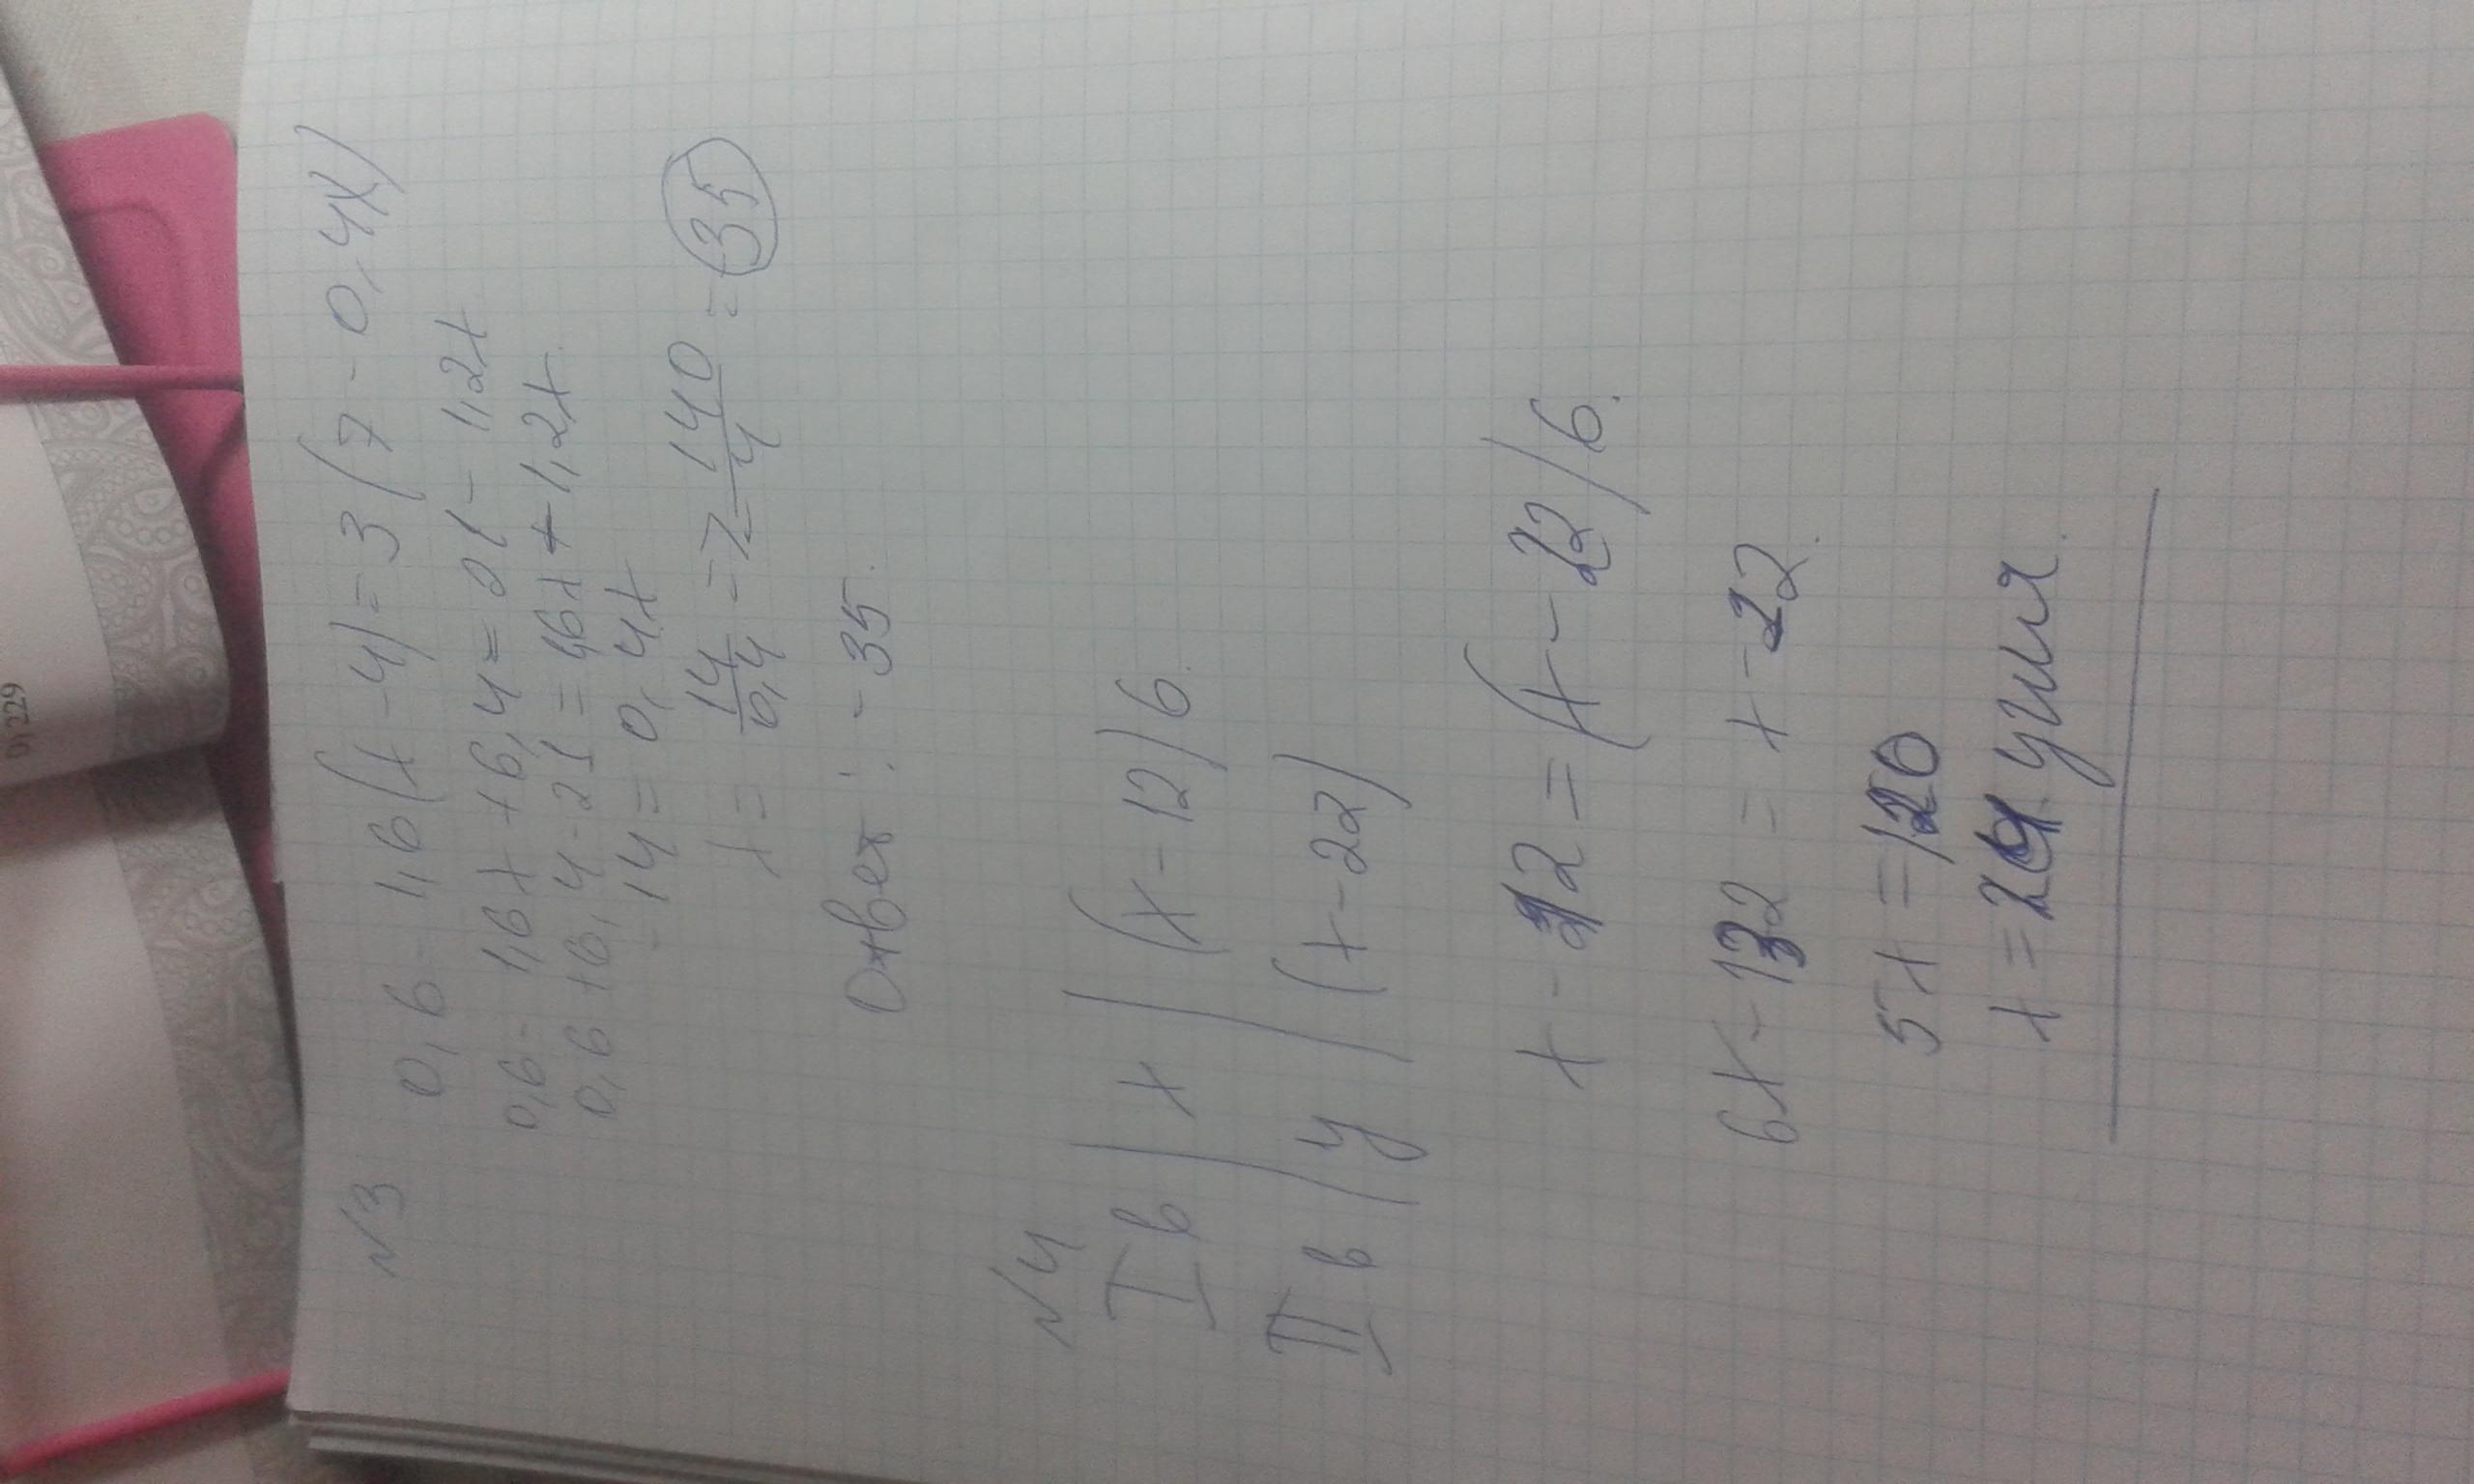 0,229
№3 0,6 - 1,6(x-4) = 3(7-0,4x)
0,6 - 1,6x + 6,4 = 21 - 1,2x
0,6 + 6,4 - 21 = 1,6x + 1,2x.
-14 = 0,4x
x = 14/0,4 => 140/4 = -35
Ответ: -35.
№4
I в | x | (x-12)6.
II в | y | (x-22)
x - 12 = (x - 22)6.
6x - 132 = x - 22.
5x = 120
x = 24